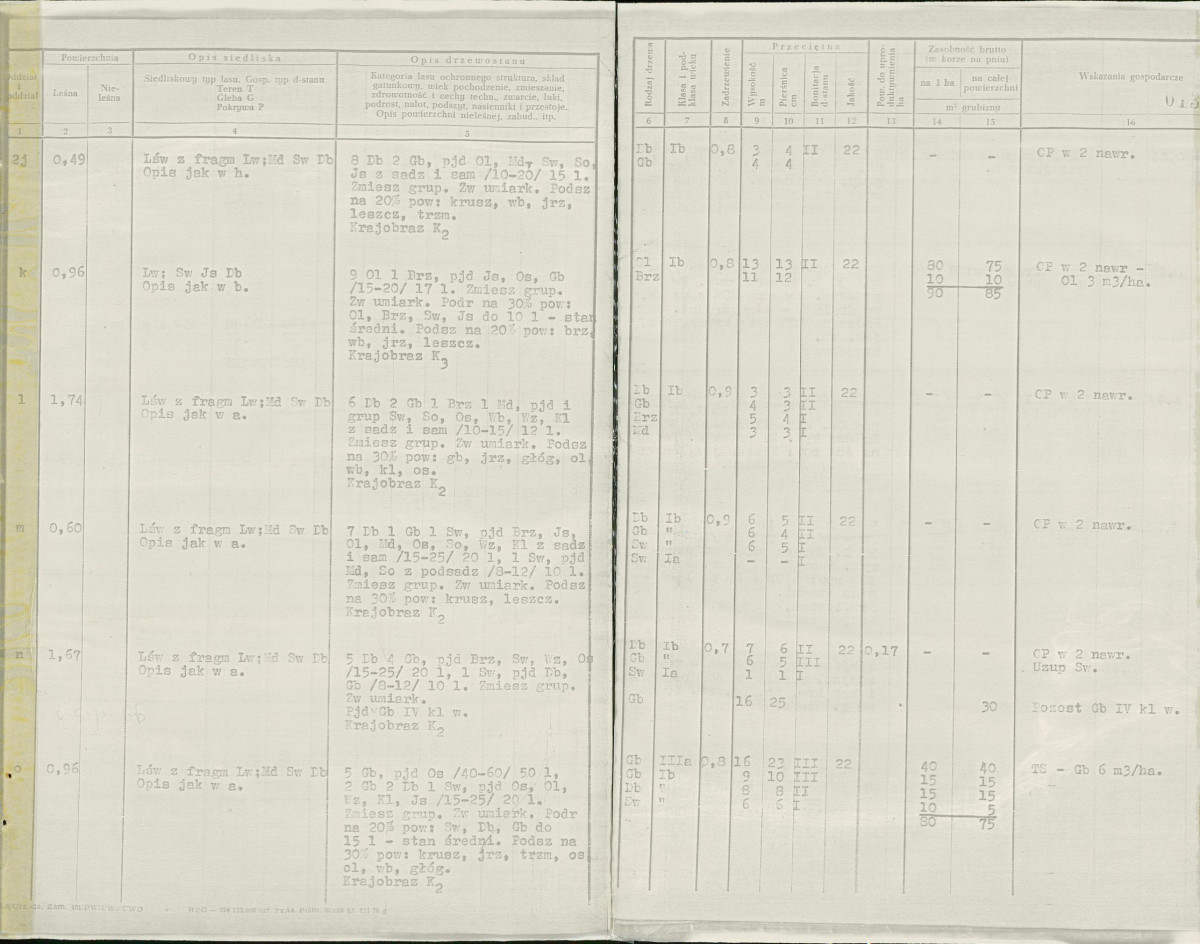 Powierzchnia
Opis siedliska
Opis drzewostanu
oddział
i
oddział
Leśna
Nie-
leśna
Siedliskowy typ lasu. Gosp. typ d-stanu
Teren T
Gleba G
Pokrywa P
Kategoria lasu ochronnego struktura, skład
gatunkowy, wiek pochodzenie, zmieszanie,
zdrowotność i cechy techn., zwarcie, luki,
podrost, nalot, podszyt, nasienniki i przestoje.
Opis powierzchni nieleśnej, zabud., itp.
1 2 3 4 5
2j 0,49 Lśw z fragm Lw;Md Sw Db
Opis jak w h.
8 Db 2 Gb, pjd Ol, Md, Sw, So,
Js z sadz i sam /10-20/ 15 l.
Zmiesz grup. Zw umiark. Podsz
na 20% pow: krusz, wb, jrz,
leszcz, trzm.
Krajobraz K2
k 0,96 Lw; Sw Js Db
Opis jak w b.
9 Ol 1 Brz, pjd Js, Os, Gb
/15-20/ 17 l. Zmiesz grup.
Zw umiark. Podr na 30% pow:
Ol, Brz, Sw, Js do 10 l - stan
średni. Podsz na 20% pow: brz,
wb, jrz, leszcz.
Krajobraz K3
l 1,74 Lśw z fragm Lw;Md Sw Db
Opis jak w a.
6 Db 2 Gb 1 Brz 1 Md, pjd i
grup Sw, So, Os, Wb, Wz, Kl
z sadz i sam /10-15/ 12 l.
Zmiesz grup. Zw umiark. Podsz
na 30% pow: gb, jrz, głóg, ol,
wb, kl, os.
Krajobraz K2
m 0,60 Lśw z fragm Lw;Md Sw Db
Opis jak w a.
7 Db 1 Gb 1 Sw, pjd Brz, Js,
Ol, Md, Os, So, Wz, Kl z sadz
i sam /15-25/ 20 l, 1 Sw, pjd
Md, So z podsadz /8-12/ 10 l.
Zmiesz grup. Zw umiark. Podsz
na 30% pow: krusz, leszcz.
Krajobraz K2
n 1,67 Lśw z fragm Lw;Md Sw Db
Opis jak w a.
5 Db 4 Gb, pjd Brz, Sw, Wz, Os
/15-25/ 20 l, 1 Sw, pjd Db,
Gb /8-12/ 10 l. Zmiesz grup.
Zw umiark.
Pjd Gb IV kl w.
Krajobraz K2
o 0,96 Lśw z fragm Lw;Md Sw Db
Opis jak w a.
5 Gb, pjd Os /40-60/ 50 l,
2 Gb 2 Db 1 Sw, pjd Os, Ol,
Wz, Kl, Js /15-25/ 20 l.
Zmiesz grup. Zw umiark. Podr
na 20% pow: Sw, Db, Gb do
15 l - stan średni. Podsz na
30% pow: krusz, jrz, trzm, os,
ol, wb, głóg.
Krajobraz K2
Rodzaj drzewa
Klasa i pod-
klasa wieku
Zadrzewienie
Przeciętna
Wysokość
m
Pierśnica
cm
Bonitacja
d-stanu
Jakość
Pow. do upro-
duktywnienia
ha
Zasobność brutto
(w korze na pniu)
na 1 ha
na całej
powierzchni
m³ grubizny
Wskazania gospodarcze
6 7 8 9 10 11 12 13 14 15 16
Db Ib 0,8 3 4 II 22 - - CP w 2 nawr.
Gb 4 4
Ol Ib 0,8 13 13 II 22 80 75 CP w 2 nawr -
Brz 11 12 10 10 Ol 3 m3/ha.
90 85
Db Ib 0,9 3 3 II 22 - - CP w 2 nawr.
Gb 4 3 II
Brz 5 4 I
Md 3 3 I
Db Ib 0,9 6 5 II 22 - - CP w 2 nawr.
Gb " 6 4 II
Sw " 6 5 I
Sw Ia - - I
Db Ib 0,7 7 6 II 22 0,17 - - CP w 2 nawr.
Gb " 6 5 III Uzup Sw.
Sw Ia 1 1 I
Gb 16 25 30 Pozost Gb IV kl w.
Gb IIIa 0,8 16 23 III 22 40 40 TS - Gb 6 m3/ha.
Gb Ib 9 10 III 15 15
Db " 8 8 II 15 15
Sw " 6 6 I 10 5
80 75